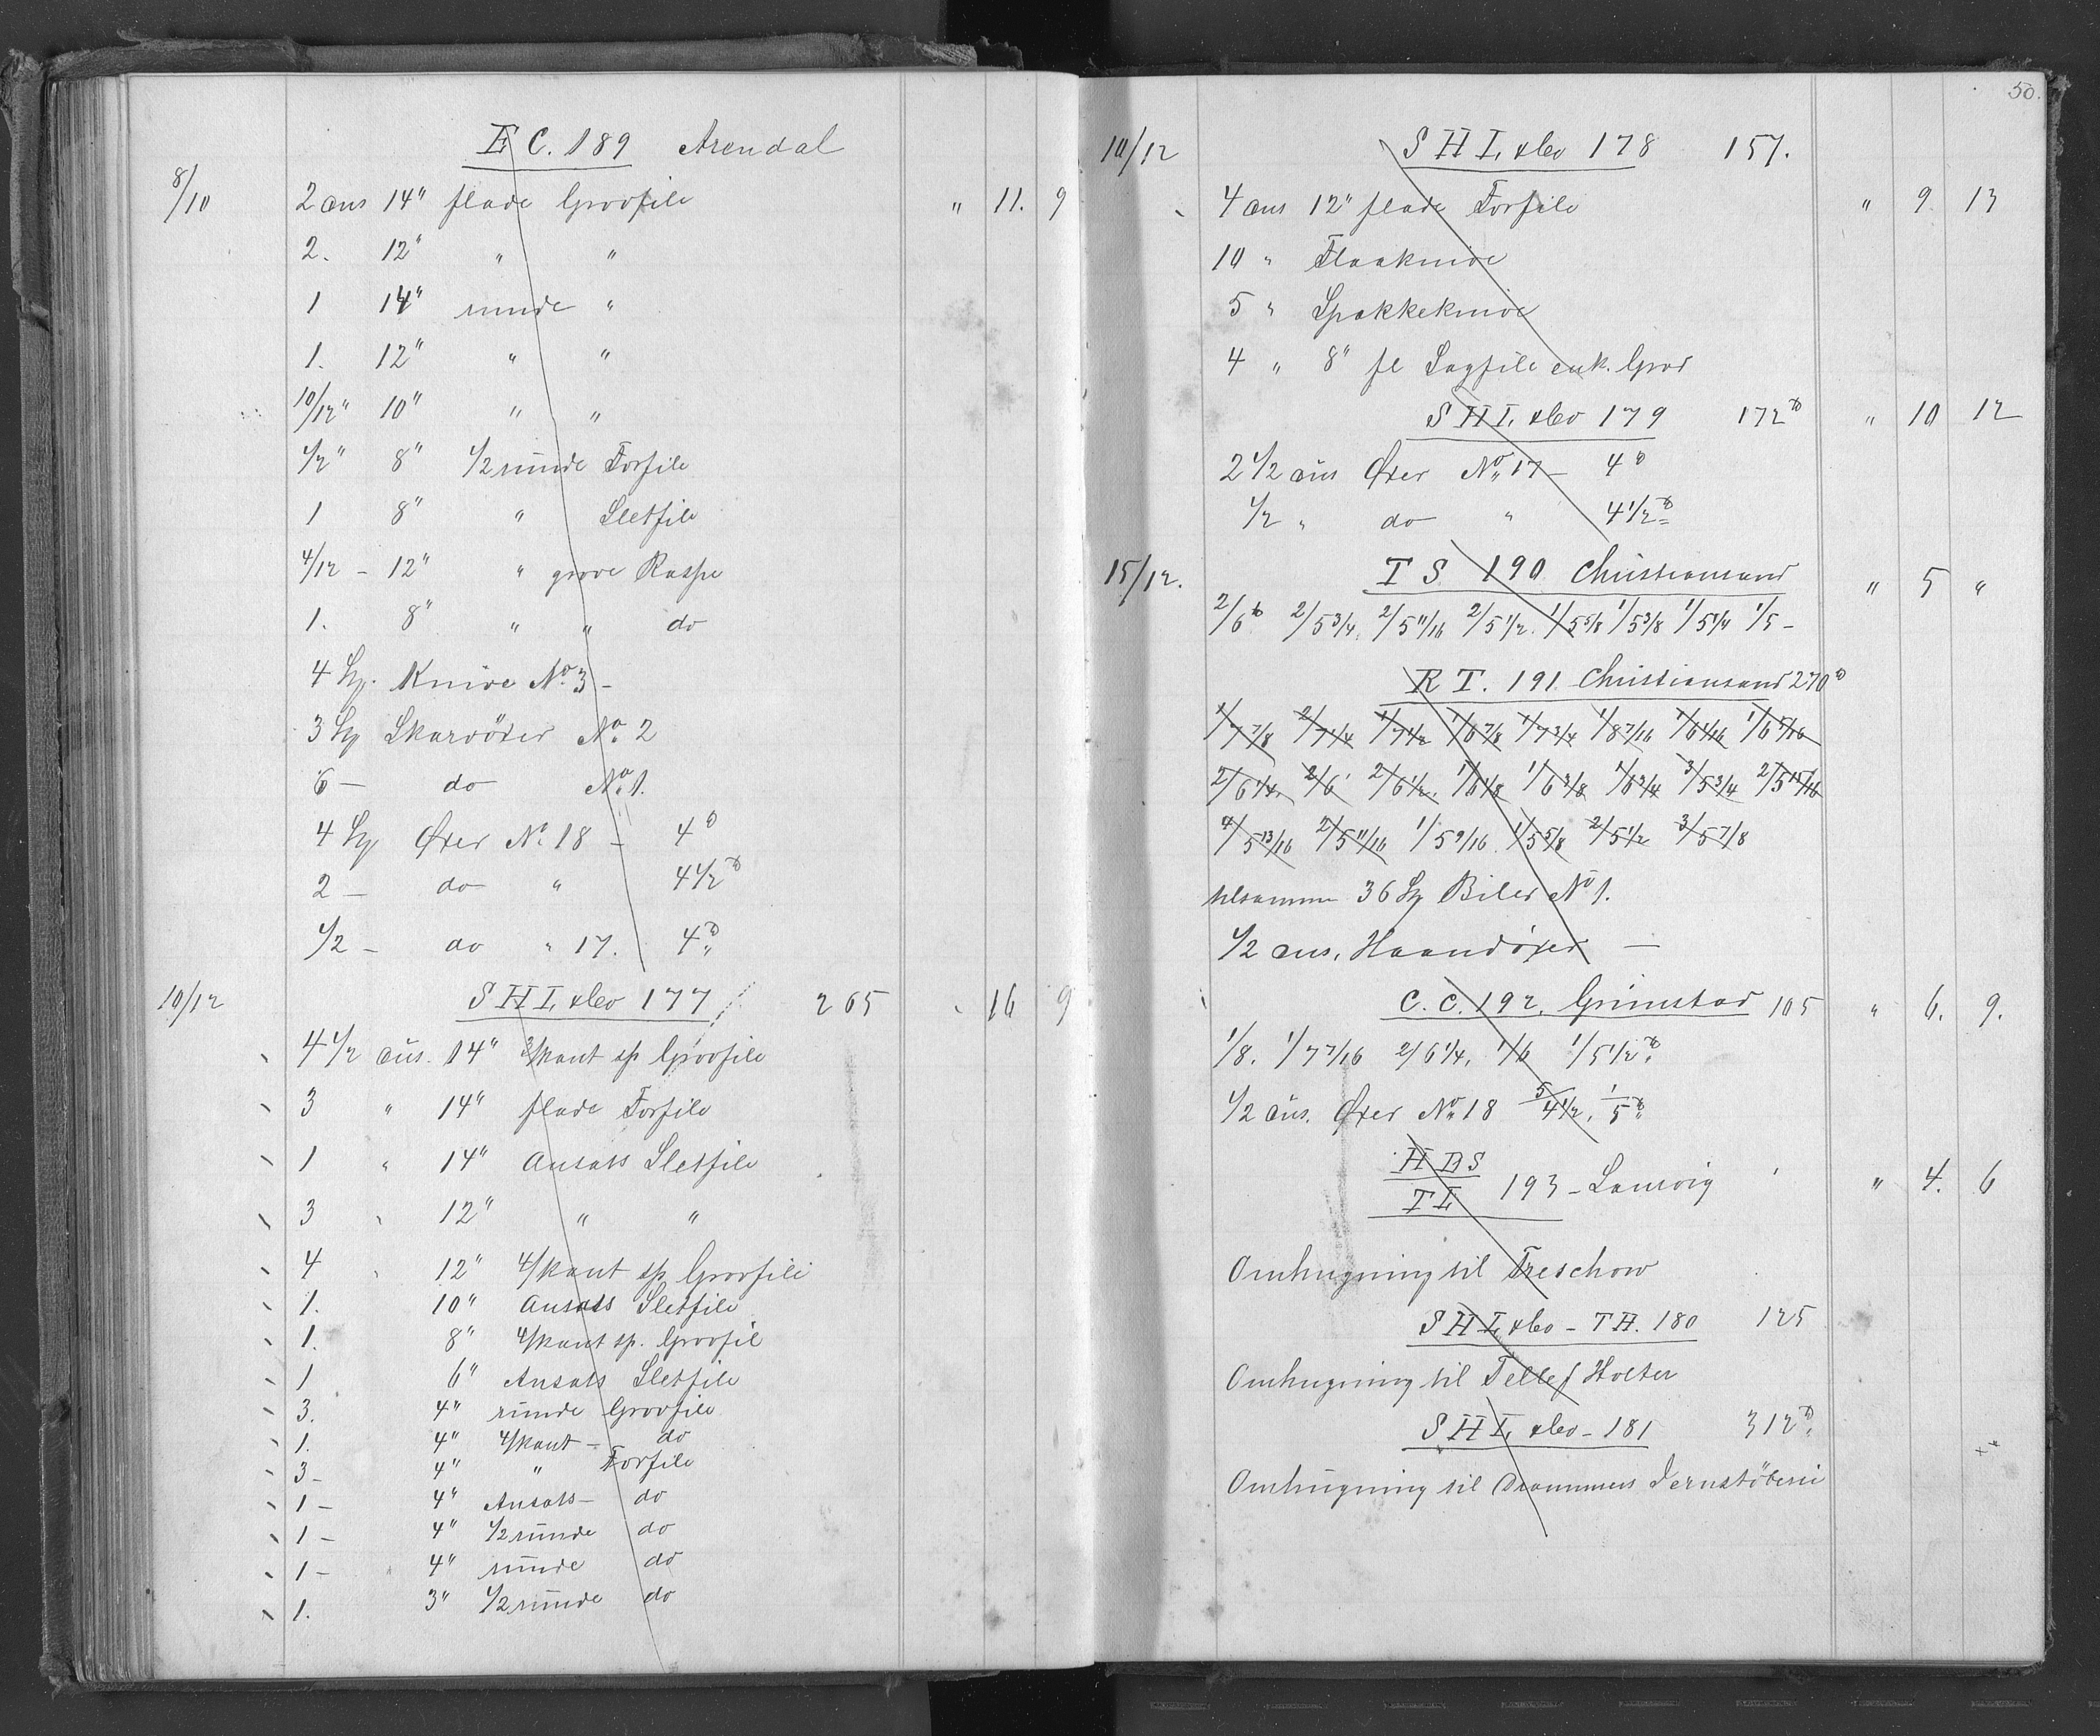 E C. 189 Arendal
8/10 2 dus 14" flade Grovfile " 11. 9
2. 12" " "
1 14" runde "
1. 12" " "
10/12" 10" " "
1/2" 8" 1/2 runde Forfile
1 8" " Sletfile
4/12 - 12" " grove Raspe
1. 8" " " do
4 Sp. Knive No. 3 -
3 Sp Skarvöxer No. 2
6 - do No. 1.
4 Sp Öxer No. 18 - 4 ℔
2 - do " 4 1/2 ℔
1/2 - do " 17. 4 ℔
10/12 S H L & Co 177 265 " 16 9
4 1/2 dus. 14" 3/kant sp Grovfile
3 " 14" flade Forfile
1 " 14" Ansats Sletfile
3 " 12" " "
4 " 12" 4/kant sp Grovfile
1. 10" Ansats Sletfile
1. 8" 4/kant sp. Grovfil
1 6" Ansats Sletfile
3. 4" runde Grovfile
1. 4" 4/kant - do
3 - 4" " Forfile
1 - 4" Ansats - do
1 - 4" 1/2 runde do
1 - 4" runde do
1. 3" 1/2 runde do
50.
10/12 S H L & Co 178 157.
4 dus 12" flade Forfile " 9 13
10 " Flaaknive
5 " Spækkeknive
4 " 8" fl Sagfile enk. Grov
S H L & Co 179 172 ℔ " 10 12
2 1/2 dus Öxer No. 17 - 4 ℔
1/2 " do " 4 1/2 ℔
15/12. T S 190 Christiansand " 5 "
2/6 ℔ 2/5 3/4. 2/5 11/16 2/5 1/2. 1/5 5/8 1/5 3/8 1/5 1/4 1/5 -
R T. 191 Christiansand 270 ℔
1/7 7/8 2/7 1/4 1/7 1/2 1/6 7/8 1/7 3/4 1/8 7/16 1/6 1/16 1/6 5/16
2/6 1/4. 2/6 2/6 1/2. 1/6 1/8 1/6 3/8 1/6 3/4 3/5 3/4 2/5 15/16
4/5 13/16 2/5 11/16 1/5 9/16. 1/5 5/8 2/5 1/2 3/5 7/8
tilsammen 36 Sp Biler No 1.
1/2 dus. Haandöxer -
C. C. 192. Grimstad 105 " 6. 9.
1/8. 1/7 7/16 2/6 1/4. 1/6 1/5 1/2 ℔
1/2 dus. Öxer No. 18 5/4 1/2, 1/5 ℔
H B S
T L 193 - Laurvig " 4. 6
Omhugning til Treschow
S H L & Co - T H. 180 125
Omhugning til Tellef Holter
S H L & Co - 181 312 ℔
Omhugning til Drammens Jernstöberi